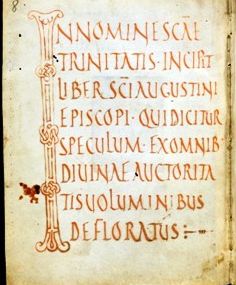 8
IN NOMINE SCAE
TRINITATIS · INCIPIT
LIBER SCI AUGUSTINI
EPISCOPI · QUI DICITUR
SPECULUM · EX OMNIB
DIUINAE AUCTORITA
TIS UOLUMINIBUS
DEFLORATUS :